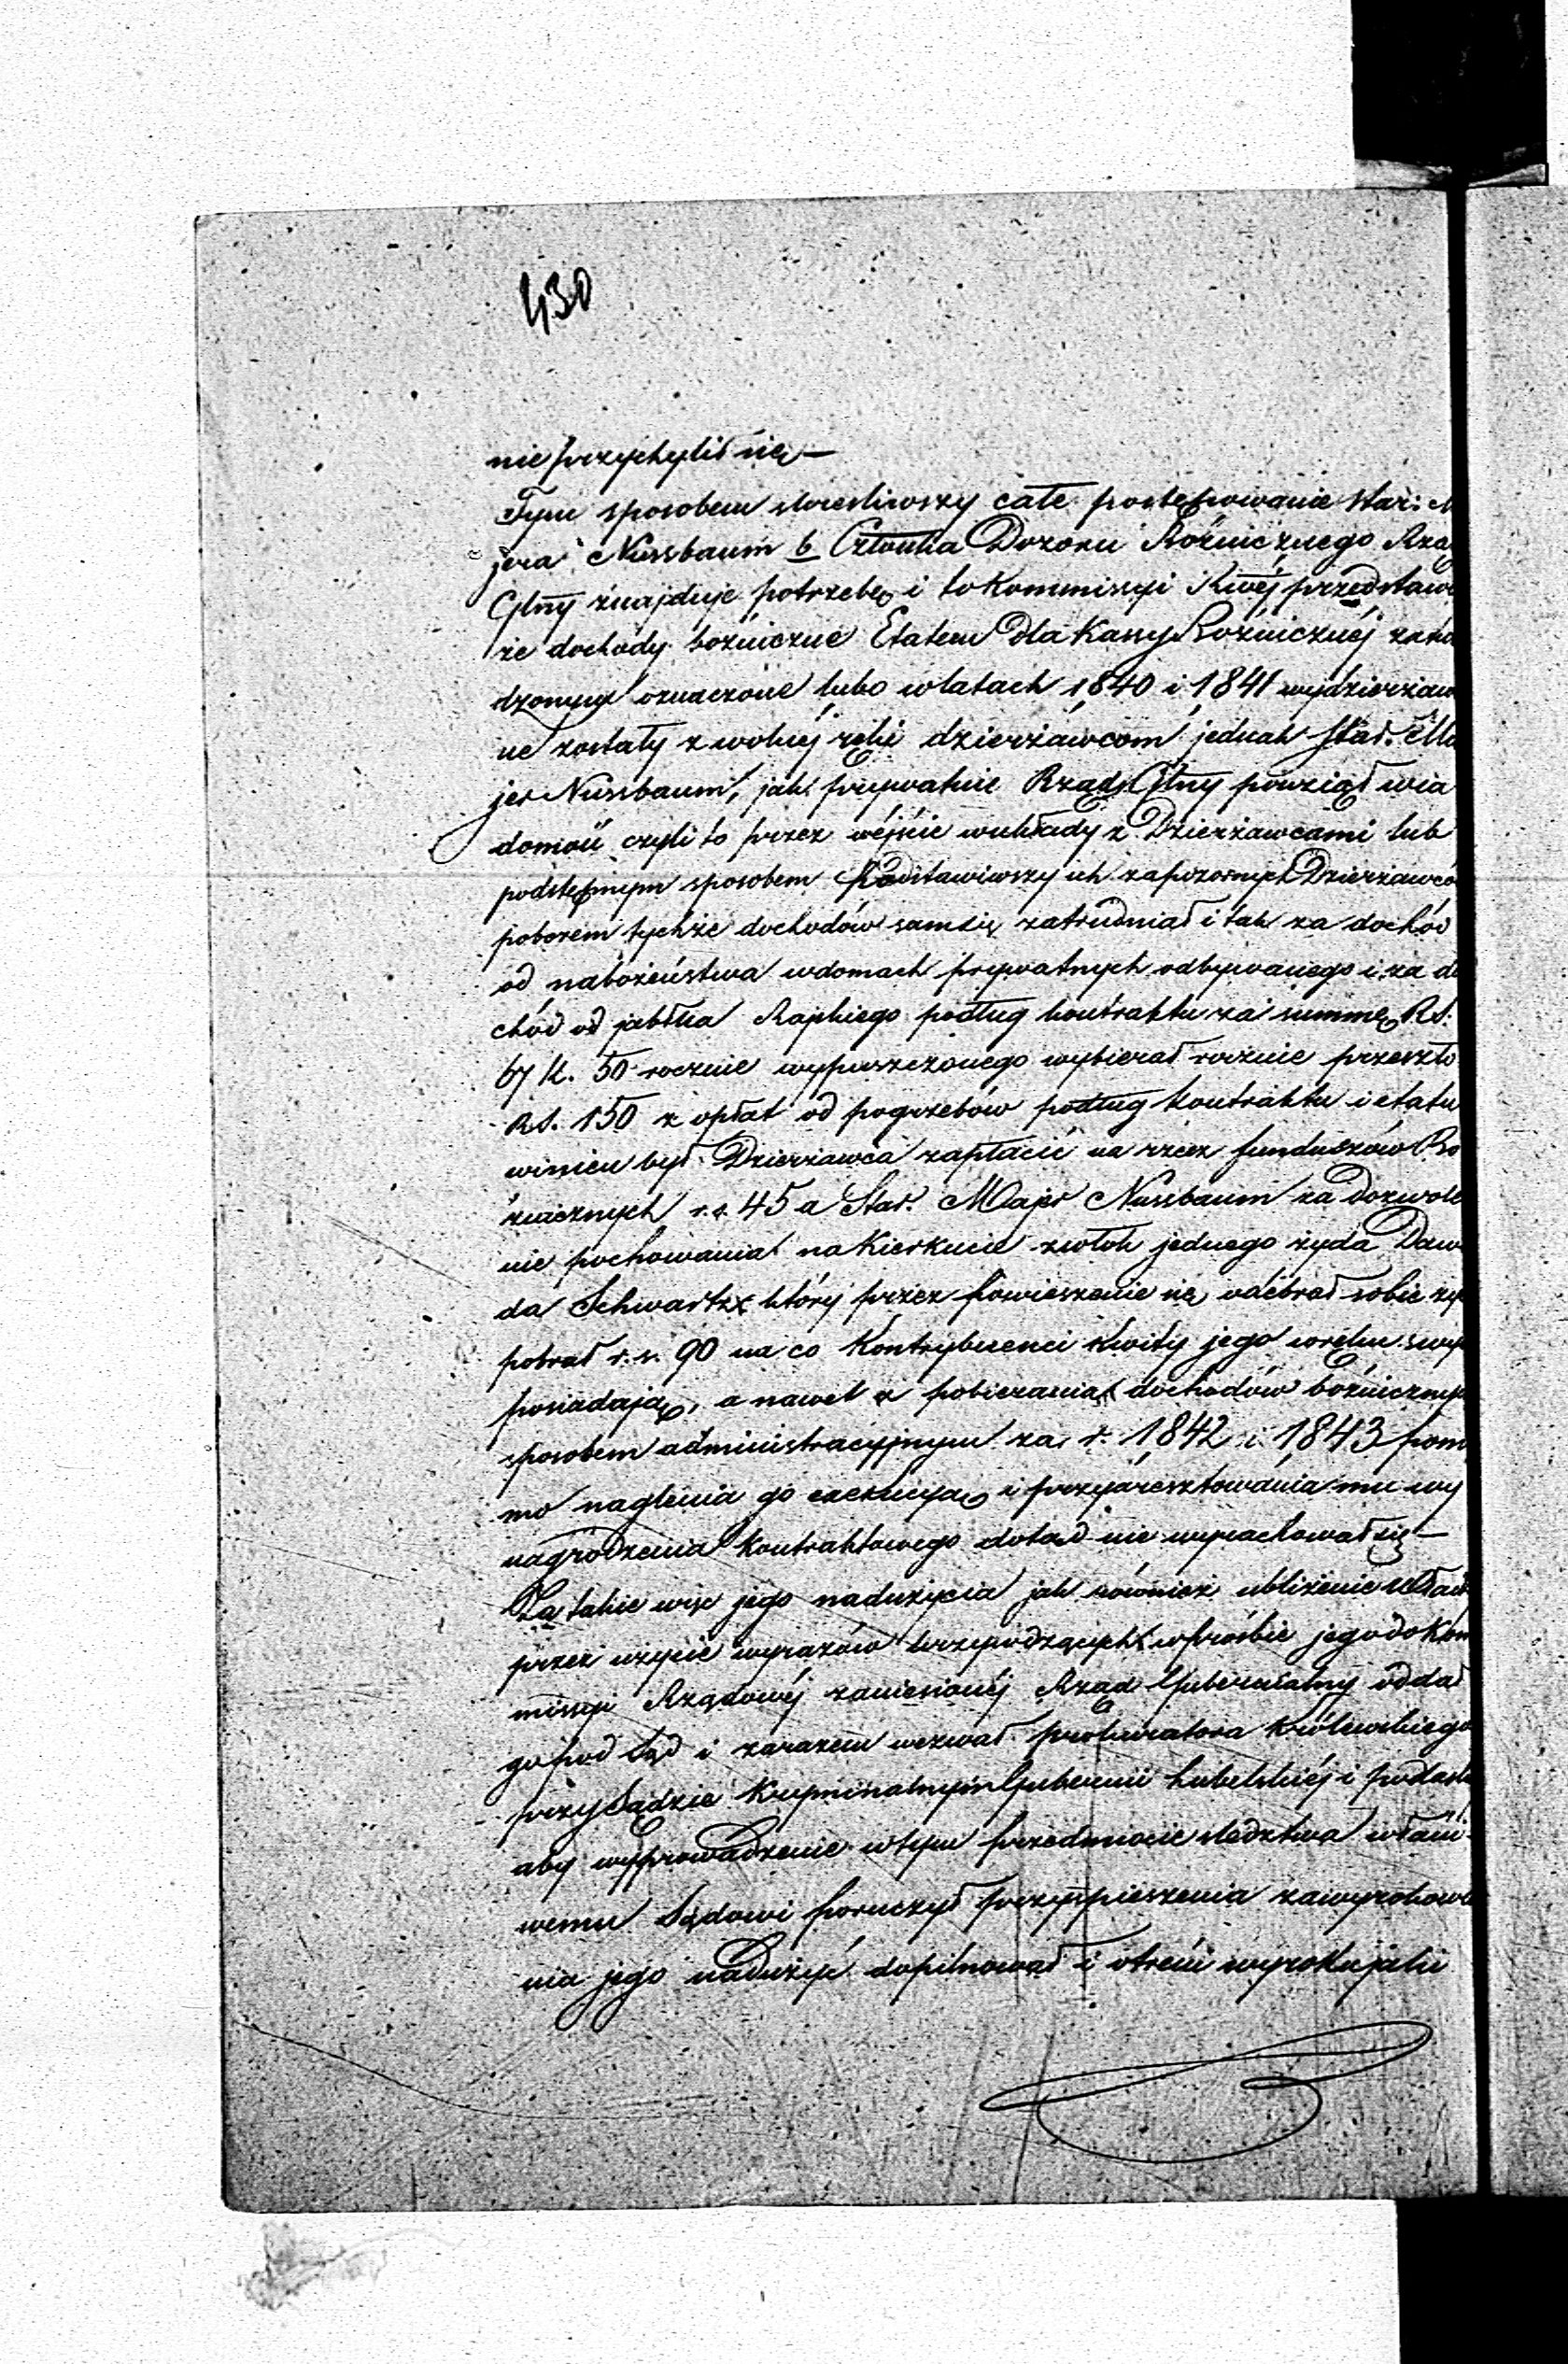 430
nie przychylił się —
Tym sposobem skreśliwszy całe postępowanie Star: M
jera Nussbaum b. Członka Dozoru Bóżnicznego Rząd
Glny znajduje potrzebę i to Kommisyi Rwéj przedstawi
że dochody bóżniczne Etatem dla Kassy Bóżnicznéj zatw
dzonym oznaczone lubo w latach 1840 i 1841 wydzierżaw
ne zostały z wolnéj ręki dzierżawcom jednak Star. Ma
jer Nussbaum, jak prywatnie Rząd Glny powziął wia
domość czyli to przez wéjście w układy z Dzierżawcami lub
podstępnym sposobem podstawiwszy ich za pozornych Dzierżawcó
poborem tychże dochodów sam się zatrudniał i tak za dochód
od nabożeństwa w domach prywatnych odbywanego i za do
chód od jabłka Rajskiego podług kontraktu za summę RS.
67 k. 50 rocznie wypuszczonego wybierał rocznie przeszło
RS. 150 z opłat od pogrzebów podług kontraktu i etatu
winien był Dzierżawca zapłacić na rzecz funduszów Bó
żnicznych r.s. 45 a Star. Majer Nussbaum za dozwole
nie pochowania na Kierkucie zwłok jednego żyda Dawi
da Schwartz który przez powieszenie się odebrał sobie życ
pobrał r.s. 90 na co Kontrybuenci kwity jego w ręku swy
posiadają, a nawet z pobierania dochodów bóżnicznych
sposobem administracyjnym za r. 1842 i 1843 pomi
mo naglenia go exekucyą i przyaresztowania mu wy
nagrodzenia kontraktowego dotąd nie wyrachował się —
Za takie więc jego nadużycia jak również ubliżenie Wład
przez użycie wyrazów krzywdzących w prośbie jego do Kom
missyi Rządowéj zaniesionéj Rząd Gubernialny oddał
go pod Sąd i zarazem wezwał prokuratora Królewskiego
przy Sądzie Kryminalnym Gubernii Lubelskiéj i Podlask
aby wyprowadzenie w tym przedmiocie śledztwa właści
wemu Sądowi poruczył przyspieszenia zawyrokowa
nia jego nadużyć dopilnował i o treści wyroku jaki